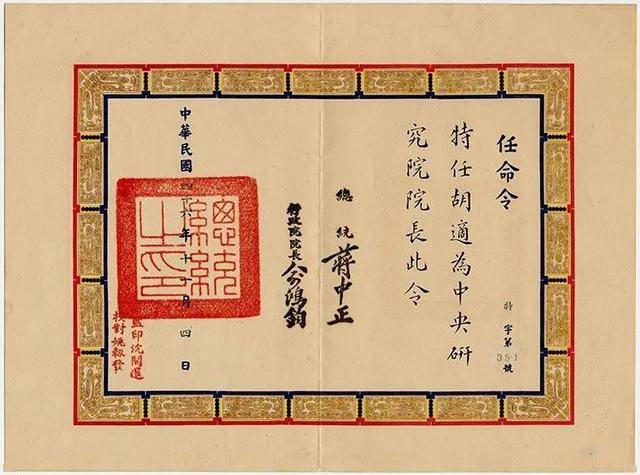 任命令
特任胡適為中央研
究院院長此令
特字第351號
總統 蔣中正
行政院院長 俞鴻鈞
中華民國四十六年十一月四日
總統之印
監印沈開運
校對姚毅發